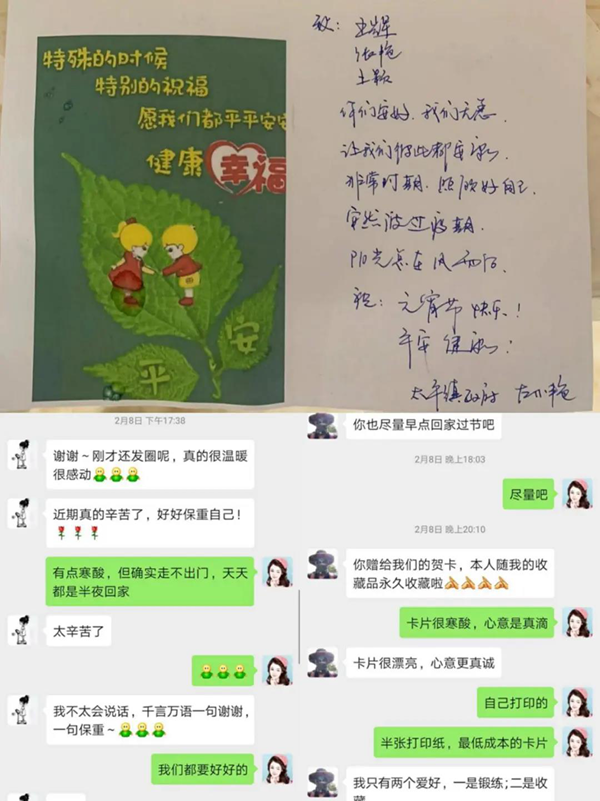 特殊的时候
特别的祝福
愿我们都平平安安
健康幸福
平安
致：
张艳
王颖
你们安好，我们无恙
让我们彼此都安康，
非常时期，照顾好自己，
安然渡过疫期，
阳光总在风雨后，
祝：元宵节快乐！
平安健康！
太平镇政府
2月8日 下午17:38
谢谢～刚才还发圈呢，真的很温暖
很感动
近期真的辛苦了，好好保重自己！
有点寒酸，但确实走不出门，天天
都是半夜回家
太辛苦了
我不太会说话，千言万语一句谢谢，
一句保重～
我们都要好好的
你也尽量早点回家过节吧
2月8日 晚上18:03
尽量吧
2月8日 晚上20:10
你赠给我们的贺卡，本人随我的收
藏品永久收藏啦
卡片很寒酸，心意是真滴
卡片很漂亮，心意更真诚
自己打印的
半张打印纸，最低成本的卡片
我只有两个爱好，一是锻练；二是收
藏